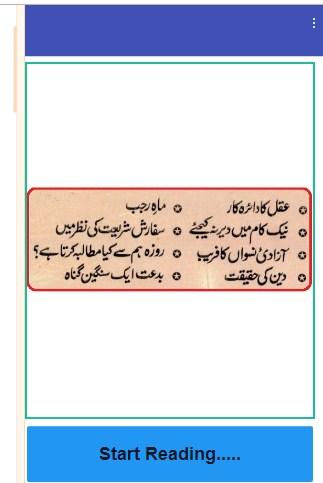 عقل کا دائرہ کار
نیک کام میں دیر نہ کیجئے
آزادئ نسواں کا فریب
دین کی حقیقت
ماہِ رجب
سفارش شریعت کی نظر میں
روزہ ہم سے کیا مطالبہ کرتا ہے؟
بدعت ایک سنگین گناہ
Start Reading.....